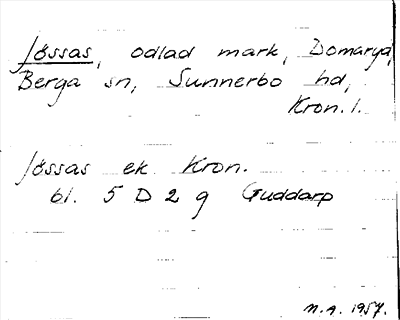 Jössas, odlad mark, Domaryd,
Berga sn, Sunnerbo hd,
Kron. l.
Jössas ek Kron.
bl. 5 D 2 g Guddarp
N.A. 1957.